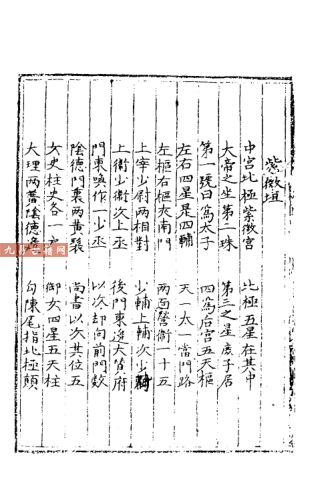 紫微垣
中宮北極紫微宮　北極五星在其中
大帝之坐第二珠　第三之星庶子居
第一號曰為太子　四為后宮五天樞
左右四星是四輔　天一太一當門路
左樞右樞夾南門　兩面營衛一十五
上宰少尉兩相對　少輔上輔次少
上衛少衛次上丞　後門東邊大贊府
門東喚作一少丞　以次却向前門數
陰德門裏兩黃聚　尚書以次其位五
女史柱史各一　御女四星五天柱
大理兩 陰德邊　勾陳尾指北極顛
九 古籍網